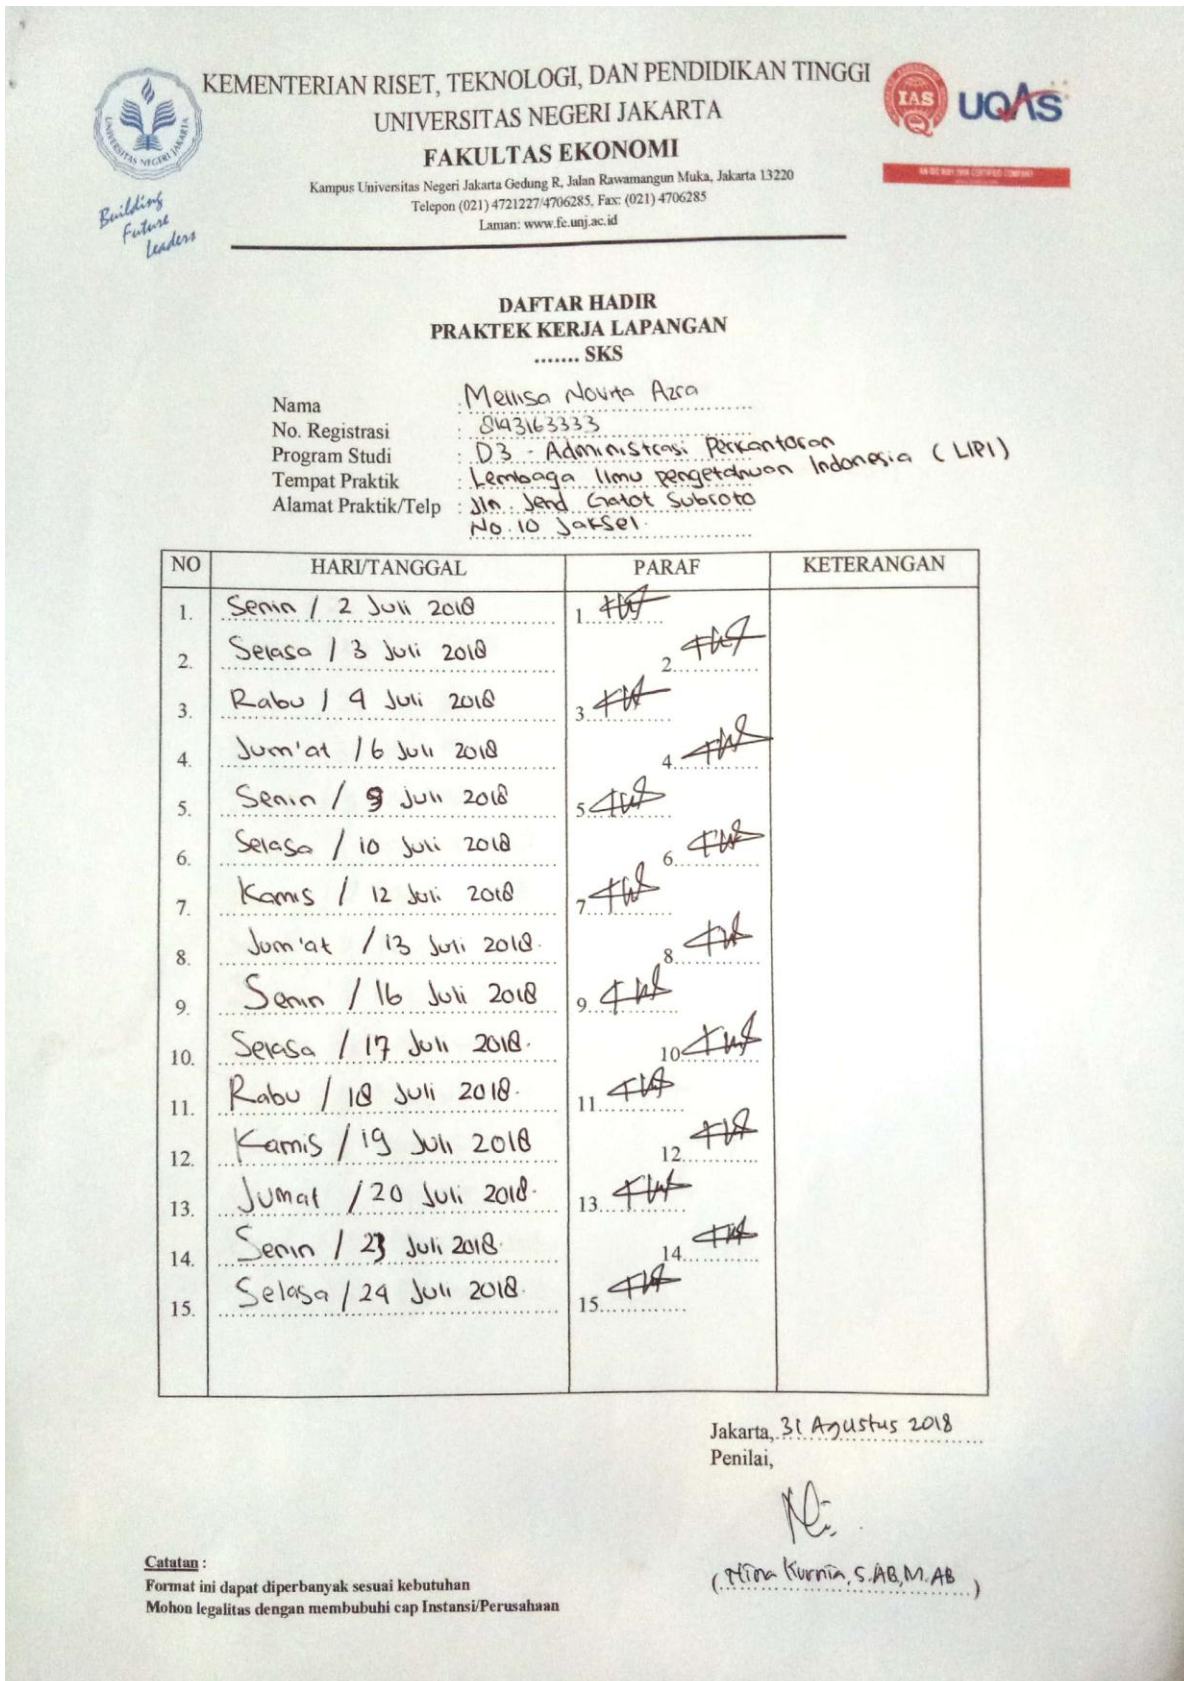 KEMENTERIAN RISET, TEKNOLOGI, DAN PENDIDIKAN TINGGI
UNIVERSITAS NEGERI JAKARTA
FAKULTAS EKONOMI
Kampus Universitas Negeri Jakarta Gedung R, Jalan Rawamangun Muka, Jakarta 13220
Telepon (021) 4721227/4706285, Fax: (021) 4706285
Laman: www.fe.unj.ac.id
UNIVERSITAS NEGERI JAKARTA
Building
Future
Leaders
IAS
UQAS
DAFTAR HADIR
PRAKTEK KERJA LAPANGAN
....... SKS
Nama : Mellisa Novita Azra
No. Registrasi : 8143163333
Program Studi : D3 - Administrasi Perkantoran
Tempat Praktik : Lembaga Ilmu pengetahuan Indonesia (LIPI)
Alamat Praktik/Telp : Jln. Jend Gatot Subroto
No.10 Jaksel.
NO HARI/TANGGAL PARAF KETERANGAN
1. Senin / 2 Juli 2018 1.
2. Selasa / 3 Juli 2018 2.
3. Rabu / 4 Juli 2018 3.
4. Jum'at / 6 Juli 2018 4.
5. Senin / 9 Juli 2018 5.
6. Selasa / 10 Juli 2018 6.
7. Kamis / 12 Juli 2018 7.
8. Jum'at / 13 Juli 2018. 8.
9. Senin / 16 Juli 2018 9.
10. Selasa / 17 Juli 2018. 10.
11. Rabu / 18 Juli 2018. 11.
12. Kamis / 19 Juli 2018 12.
13. Jumat / 20 Juli 2018. 13.
14. Senin / 23 Juli 2018. 14.
15. Selasa / 24 Juli 2018. 15.
Jakarta, 31 Agustus 2018
Penilai,
(Nina Kurnia, S.AB, M.AB)
Catatan :
Format ini dapat diperbanyak sesuai kebutuhan
Mohon legalitas dengan membubuhi cap Instansi/Perusahaan